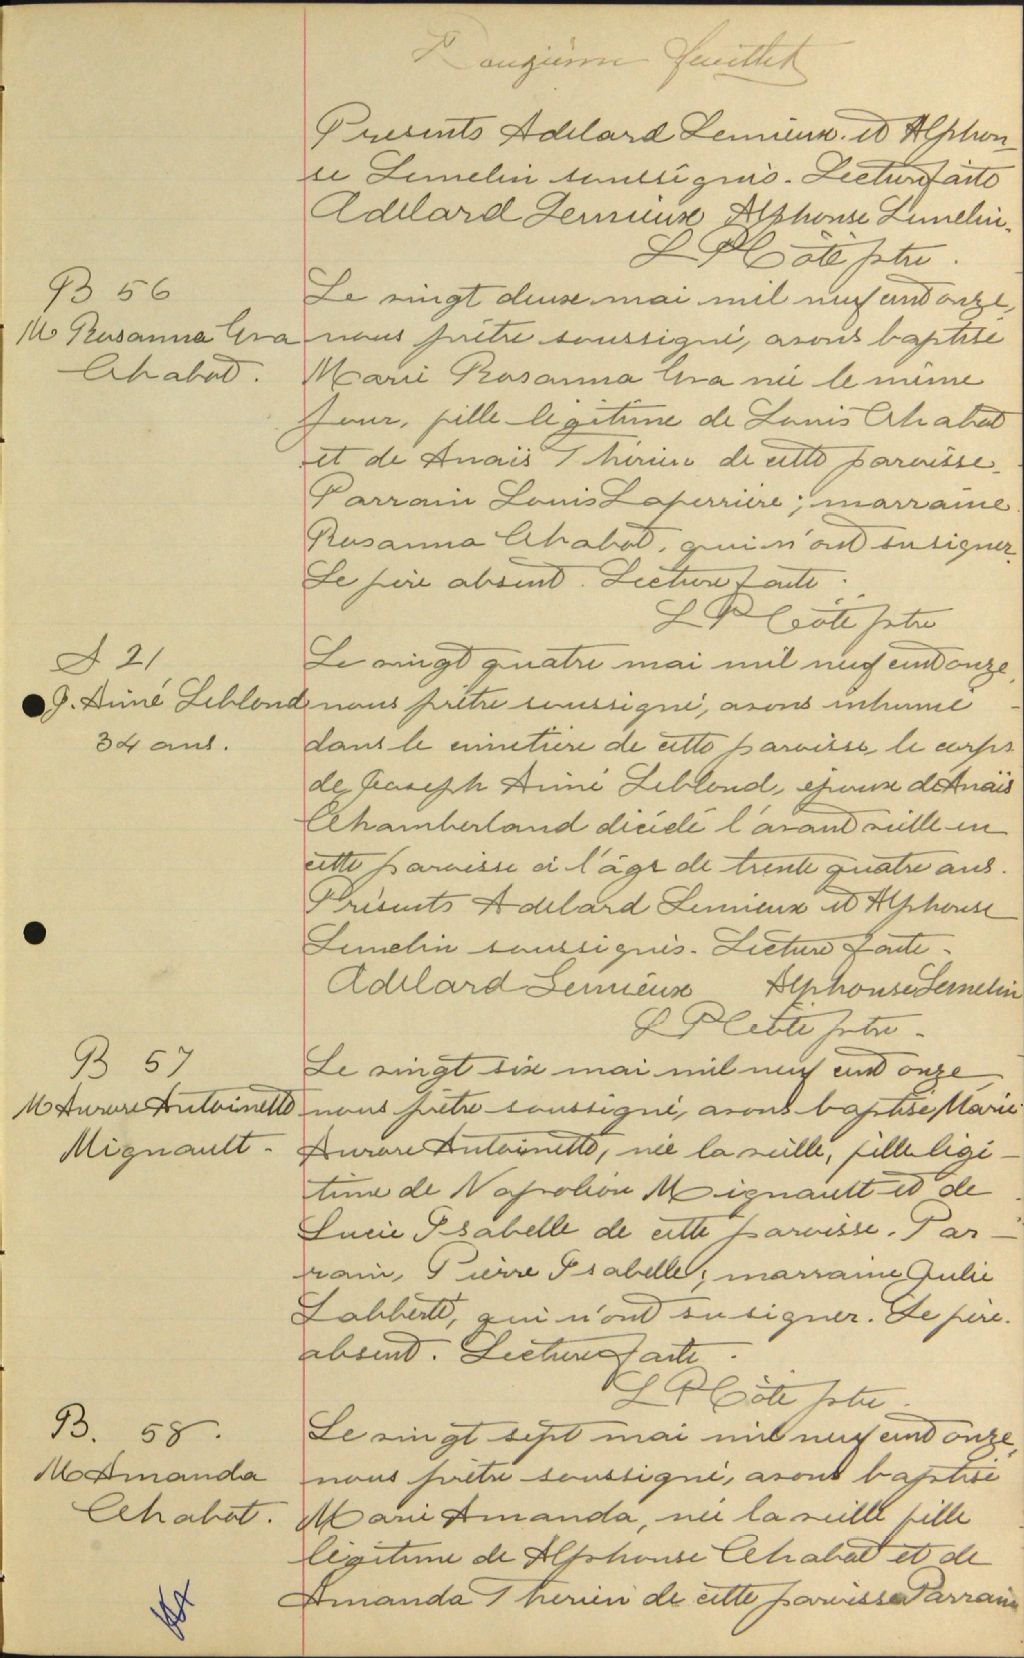 Douzième feuillet
Presents Adelard Lemieux et Alphon-
se Lemelin soussignés. Lecture faite
Adelard Lemieux Alphonse Lemelin.
L P Côté ptre.
B 56
M Rosanna Eva
Chabot.
Le vingt deux mai mil neuf cent onze,
nous prêtre soussigné, avons baptisé
Marie Rosanna Eva née le même
jour, fille légitime de Louis Chabot
et de Anaïs Thérien de cette paroisse.
Parrain Louis Laperrière; marraine
Rosanna Chabot, qui n'ont su signer.
Le père absent. Lecture faite.
L P Côté ptre
S 21
J. Aimé Leblond
34 ans.
Le vingt quatre mai mil neuf cent onze,
nous prêtre soussigné, avons inhumé
dans le cimetière de cette paroisse, le corps
de Joseph Aimé Leblond, époux de Anaïs
Chamberland décédé l'avant veille en
cette paroisse à l'âge de trente quatre ans.
Présents Adelard Lemieux et Alphonse
Lemelin soussignés. Lecture faite.
Adelard Lemieux Alphonse Lemelin
L P Côté ptre.
B 57
M Aurore Antoinette
Mignault.
Le vingt six mai mil neuf cent onze,
nous prêtre soussigné, avons baptisé Marie
Aurore Antoinette, née la veille, fille légi-
time de Napoléon Mignault et de
Lucie Isabelle de cette paroisse. Par-
rain, Pierre Isabelle; marraine Julie
Labberté, qui n'ont su signer. Le père
absent. Lecture faite.
L P Côté ptre.
B. 58.
M Amanda
Chabot.
Le vingt sept mai mil neuf cent onze,
nous prêtre soussigné, avons baptisé
Marie Amanda, née la veille fille
légitime de Alphonse Chabot et de
Amanda Therien de cette paroisse Parrain